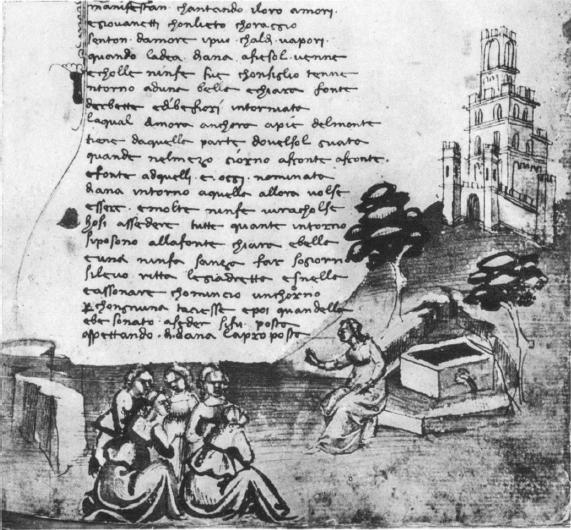 manifestan chantando iloro amori.
egiovanetti chonlieto choraggio
senton damore ipiu chaldi vapori.
quando ladea diana afiesol venne
echolle ninfe sue chonsiglio tenne
ntorno aduna bella echiara fonte
derbette edibefiori intorniata
laqual dimora anchora apie delmonte
tiene daquella parte dovelsol guata
quande nelmezo giorno afronte afronte.
efonte adquelli e. oggi. nominata
diana intorno aquella allora volse
essere. emolte ninfe viracholse
hosi assedere tutte quante intorno
siposono allafonte chiara ebella
euna ninfa sanza far sogiorno
silevo ritta legiadretta esnella
eassonare chomincio unchorno
chongniuna tacesse epoi quandella
ebe sonato aseder sifu posta
aspettando didiana lapro posta